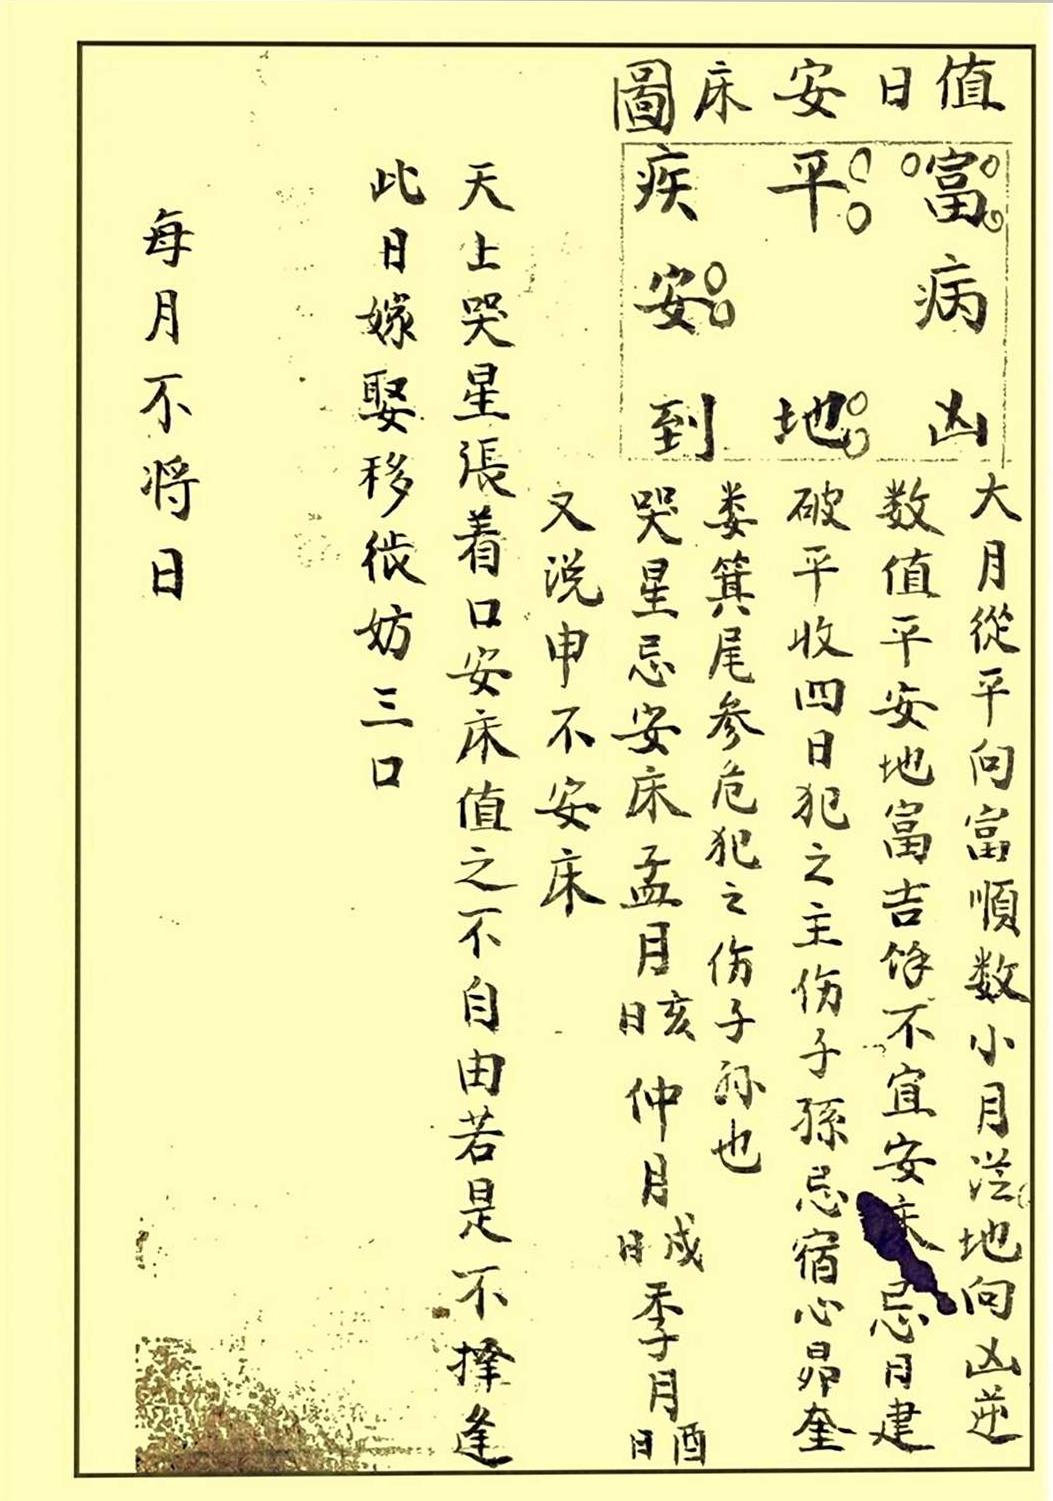 值日安床圖
富病凶
平地
疾安到
大月從平向富順数小月從地向凶逆
数值平安地富吉馀不宜安床忌月建
破平收四日犯之主伤子孫忌宿心昴奎
娄箕尾参危犯之伤子孙也
哭星忌安床孟月亥日仲月戍日季月酉日
又说申不安床
天上哭星張着口安床值之不自由若是不擇逢
此日嫁娶移徙妨三口
每月不将日